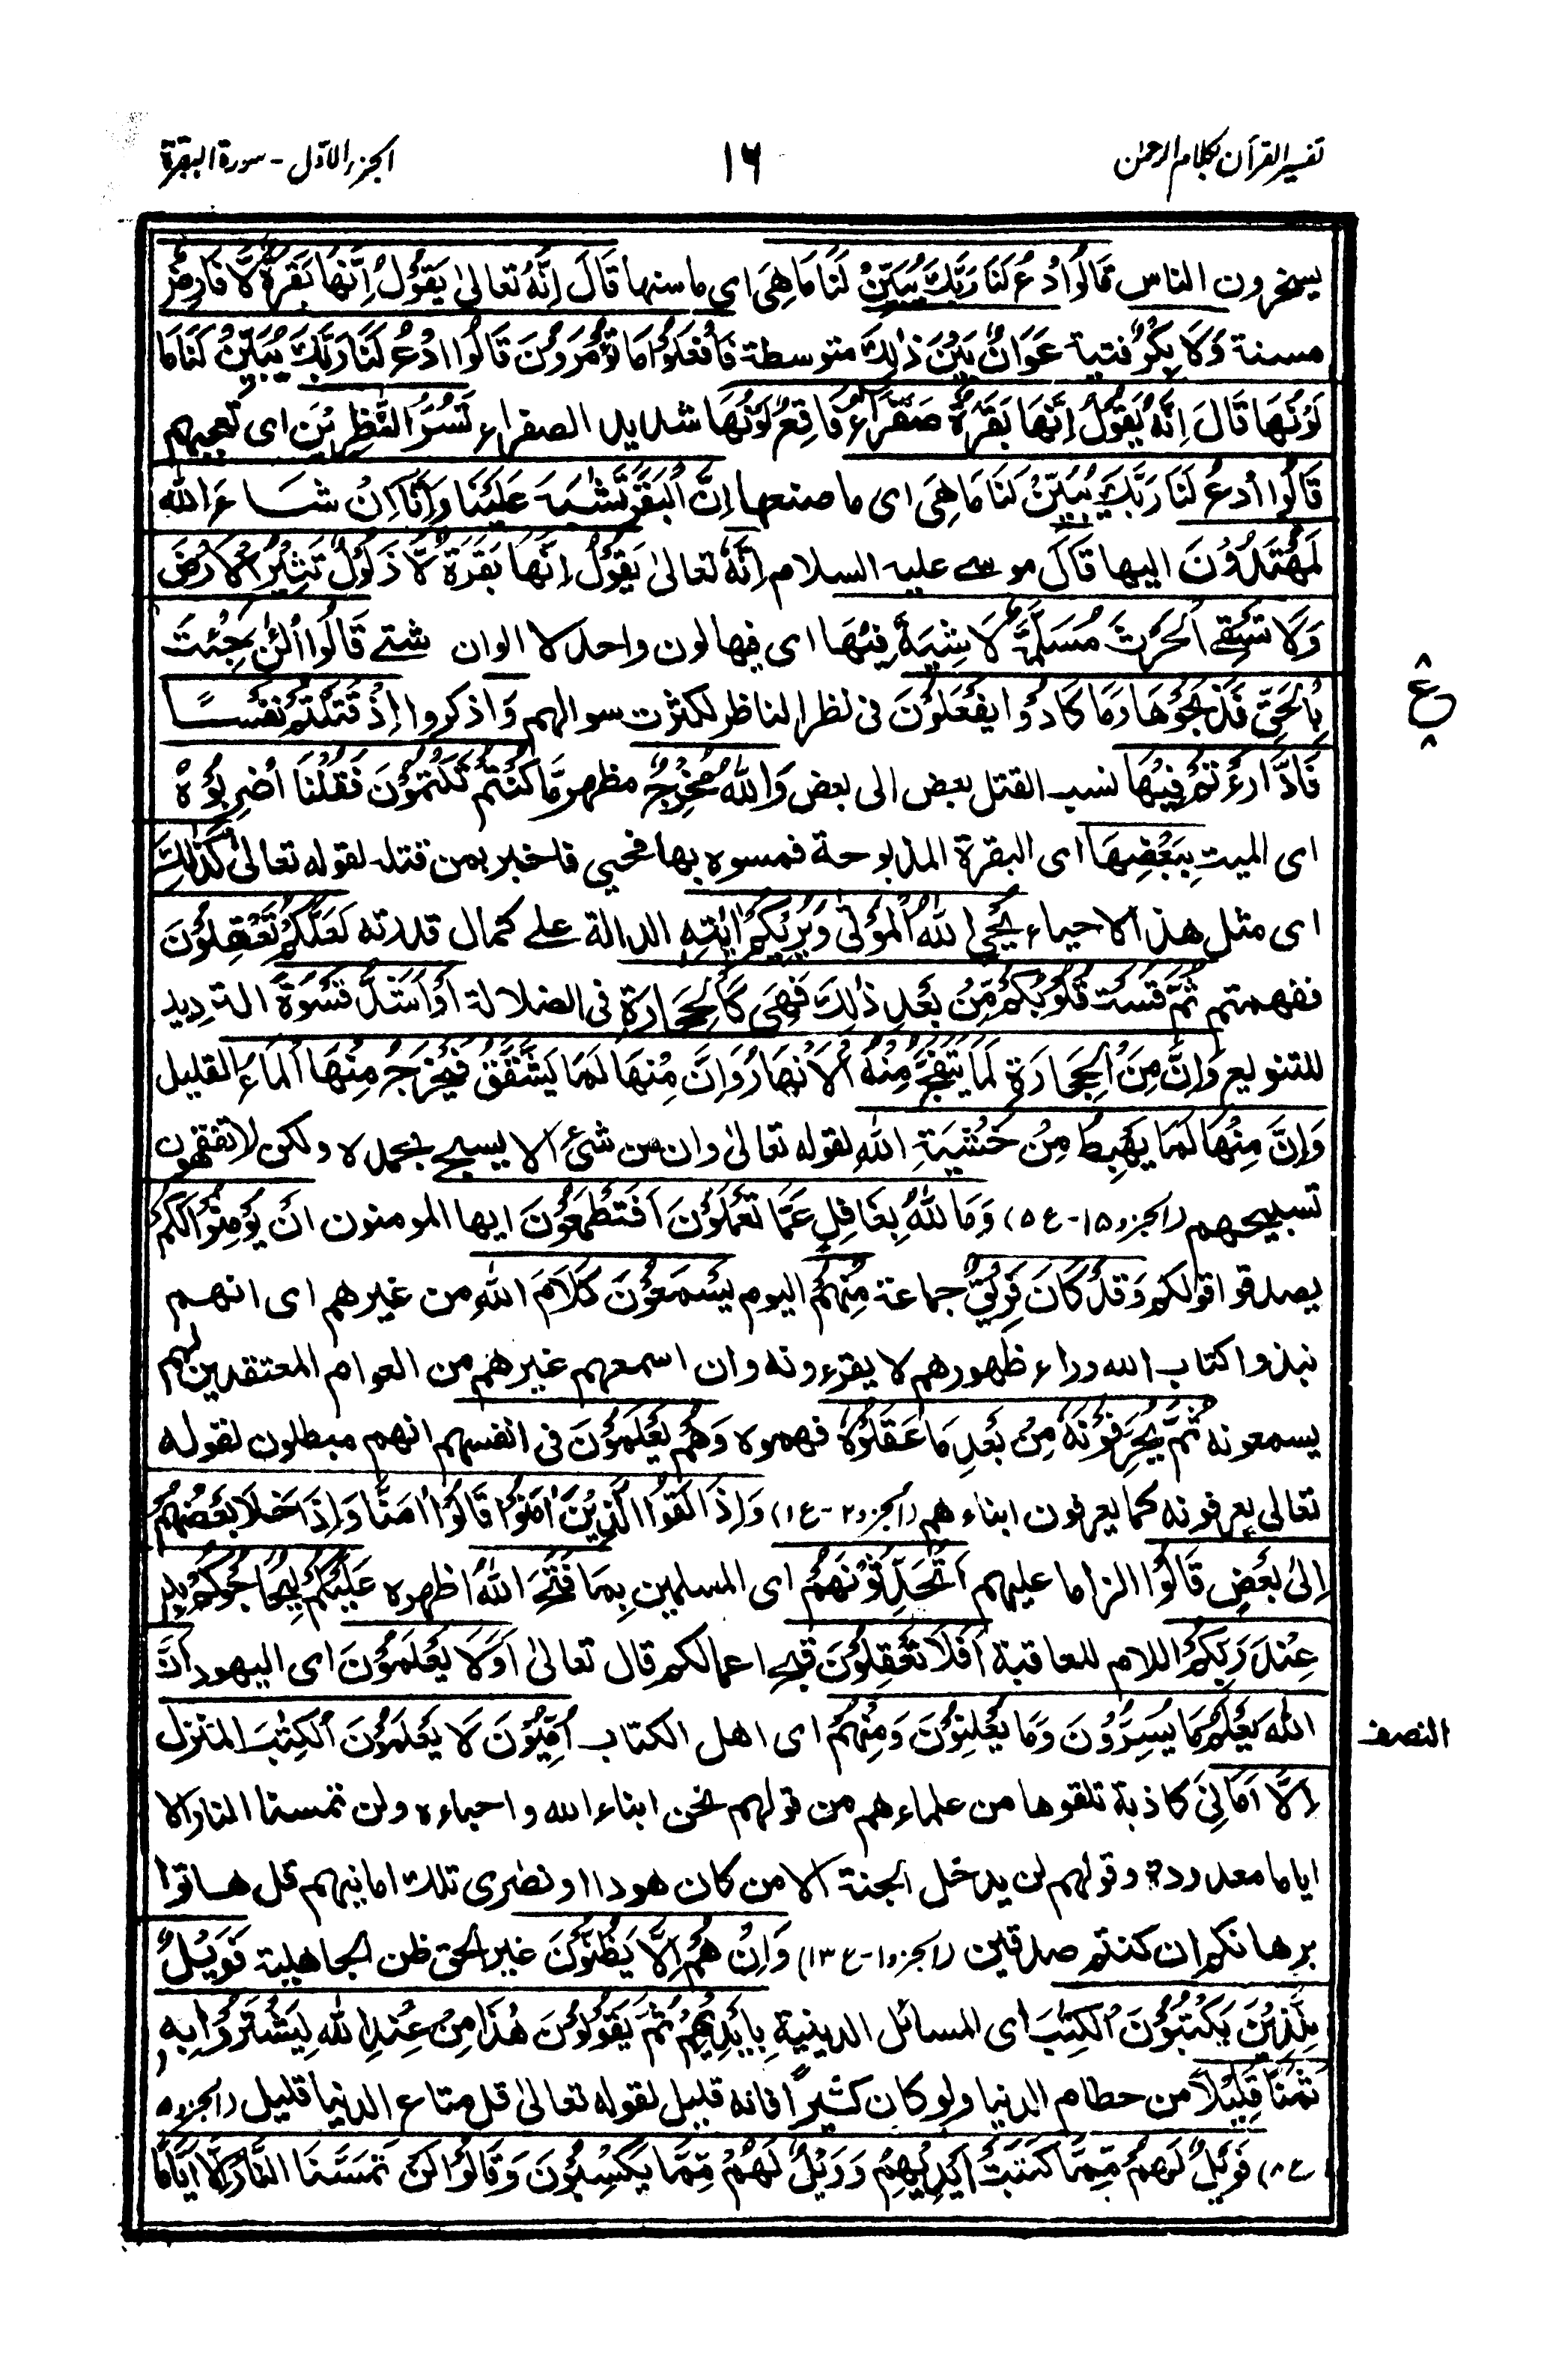 تفسير القرآن بكلام الرحمن
١٦
الجزء الاوّل - سورة البقرة
يسخرون الناس قَالُوا ادْعُ لَنَا رَبَّكَ يُبَيِّنْ لَنَا مَا هِيَ اى ما سنها قَالَ اِنَّهُ تعالىٰ يَقُوْلُ اِنَّهَا بَقَرَةٌ لَّا فَارِضٌ
مسنة وَلَا بِكْرٌ فتية عَوَانٌ بَيْنَ ذٰلِكَ متوسطة فَافْعَلُوْا مَا تُؤْمَرُوْنَ قَالُوا ادْعُ لَنَا رَبَّكَ يُبَيِّنْ لَنَا مَا
لَوْنُهَا قَالَ اِنَّهُ يَقُوْلُ اِنَّهَا بَقَرَةٌ صَفْرَاءُ فَاقِعٌ لَوْنُهَا شديد الصفراء تَسُرُّ النّٰظِرِيْنَ اى تعجبهم
قَالُوا ادْعُ لَنَا رَبَّكَ يُبَيِّنْ لَنَا مَا هِيَ اى ما صنعها اِنَّ الْبَقَرَ تَشٰبَهَ عَلَيْنَا وَاِنَّا اِنْ شَاءَ الله
لَمُهْتَدُوْنَ اليها قَالَ موسے عليه السلام اِنَّهُ تعالىٰ يَقُوْلُ اِنَّهَا بَقَرَةٌ لَّا ذَلُوْلٌ تُثِيْرُ الْاَرْضَ
وَلَا تَسْقِے الْحَرْثَ مُسَلَّمَةٌ لَا شِيَةَ فِيْهَا اى فيها لون واحد لا الوان شتے قَالُوا الْئٰنَ جِئْتَ
بِالْحَقِّ فَذَبَحُوْهَا وَمَا كَادُوْا يَفْعَلُوْنَ فى نظر الناظر لكثرت سوالهم وَاذكروا اِذْ قَتَلْتُمْ نَفْسًا
فَادَّارَءْتُمْ فِيْهَا نسب القتل بعض الى بعض وَاللهُ مُخْرِجٌ مظهر مَّا كُنْتُمْ تَكْتُمُوْنَ فَقُلْنَا اضْرِبُوْهُ
اى الميت بِبَعْضِهَا اى البقرة المذبوحة فمسوه بها فحيى فاخبر بمن قتله لقوله تعالىٰ كَذٰلِكَ
اى مثل هذا الاحياء يُحْيِ اللهُ الْمَوْتٰى وَيُرِيْكُمْ اٰيٰتِهٖ الدالة علے كمال قدرته لَعَلَّكُمْ تَعْقِلُوْنَ
ففهمتم ثُمَّ قَسَتْ قُلُوْبُكُمْ مِّنْ بَعْدِ ذٰلِكَ فَهِيَ كَالْحِجَارَةِ فى الضلالة اَوْ اَشَدُّ قَسْوَةً الترديد
للتنويع وَاِنَّ مِنَ الْحِجَارَةِ لَمَا يَتَفَجَّرُ مِنْهُ الْاَنْهَارُ وَاِنَّ مِنْهَا لَمَا يَشَّقَّقُ فَيَخْرُجُ مِنْهَا الْمَاءُ القليل
وَاِنَّ مِنْهَا لَمَا يَهْبِطُ مِنْ خَشْيَةِ اللهِ لقوله تعالىٰ وان من شئ الا يسبح بحمده ولكن لا تفقهون
تسبيحهم (الجزو ١٥ - ع ٥) وَمَا اللهُ بِغَافِلٍ عَمَّا تَعْمَلُوْنَ اَفَتَطْمَعُوْنَ ايها المومنون اَنْ يُؤْمِنُوْا لَكُمْ
يصدقوا قولكم وَقَدْ كَانَ فَرِيْقٌ جماعة مِنْهُمْ اليوم يَسْمَعُوْنَ كَلَامَ اللهِ من غيرهم اى انهم
نبذوا كتاب الله وراء ظهورهم لا يقرءونه وان اسمعهم غيرهم من العوام المعتقدين لهم
يسمعونه ثُمَّ يُحَرِّفُوْنَهُ مِنْ بَعْدِ مَا عَقَلُوْهُ فهموه وَهُمْ يَعْلَمُوْنَ فى انفسهم انهم مبطلون لقوله
تعالى يعرفونه كما يعرفون ابناءهم (الجزو ٢ - ع ١) وَاِذَا لَقُوا الَّذِيْنَ اٰمَنُوْا قَالُوْا اٰمَنَّا وَاِذَا خَلَا بَعْضُهُمْ
اِلىٰ بَعْضٍ قَالُوْا الزاما عليهم اَتُحَدِّثُوْنَهُمْ اى المسلمين بِمَا فَتَحَ اللهُ اظهره عَلَيْكُمْ لِيُحَاجُّوْكُمْ بِهٖ
عِنْدَ رَبِّكُمْ اللام للعاقبة اَفَلَا تَعْقِلُوْنَ قبح اعمالكم قال تعالىٰ اَوَلَا يَعْلَمُوْنَ اى اليهود اَنَّ
اللهَ يَعْلَمُ مَا يُسِرُّوْنَ وَمَا يُعْلِنُوْنَ وَمِنْهُمْ اى اهل الكتاب اُمِّيُّوْنَ لَا يَعْلَمُوْنَ الْكِتٰبَ المنزل
اِلَّا اَمَانِيَّ كاذبة تلقوها من علماءهم من قولهم نحن ابناء الله واحباءه ولن تمسنا النار الا
اياما معدودة وقولهم لن يدخل الجنة الا من كان هودا او نصرى تلك امانيهم قل هاتوا
برهانكم ان كنتم صدقين (الجزو ١ - ع ١٣) وَاِنْ هُمْ اِلَّا يَظُنُّوْنَ غير الحق ظن الجاهلية فَوَيْلٌ
لِلَّذِيْنَ يَكْتُبُوْنَ الْكِتٰبَ اى المسائل الدينية بِاَيْدِيْهِمْ ثُمَّ يَقُوْلُوْنَ هٰذَا مِنْ عِنْدِ اللهِ لِيَشْتَرُوْا بِهٖ
ثَمَنًا قَلِيْلًا من حطام الدنيا ولو كان كثيراً فانه قليل لقوله تعالىٰ قل متاع الدنيا قليل (الجزو ٥
ع ٨) فَوَيْلٌ لَهُمْ مِّمَّا كَتَبَتْ اَيْدِيْهِمْ وَوَيْلٌ لَهُمْ مِّمَّا يَكْسِبُوْنَ وَقَالُوْا لَنْ تَمَسَّنَا النَّارُ اِلَّا اَيَّامًا
ع
النصف